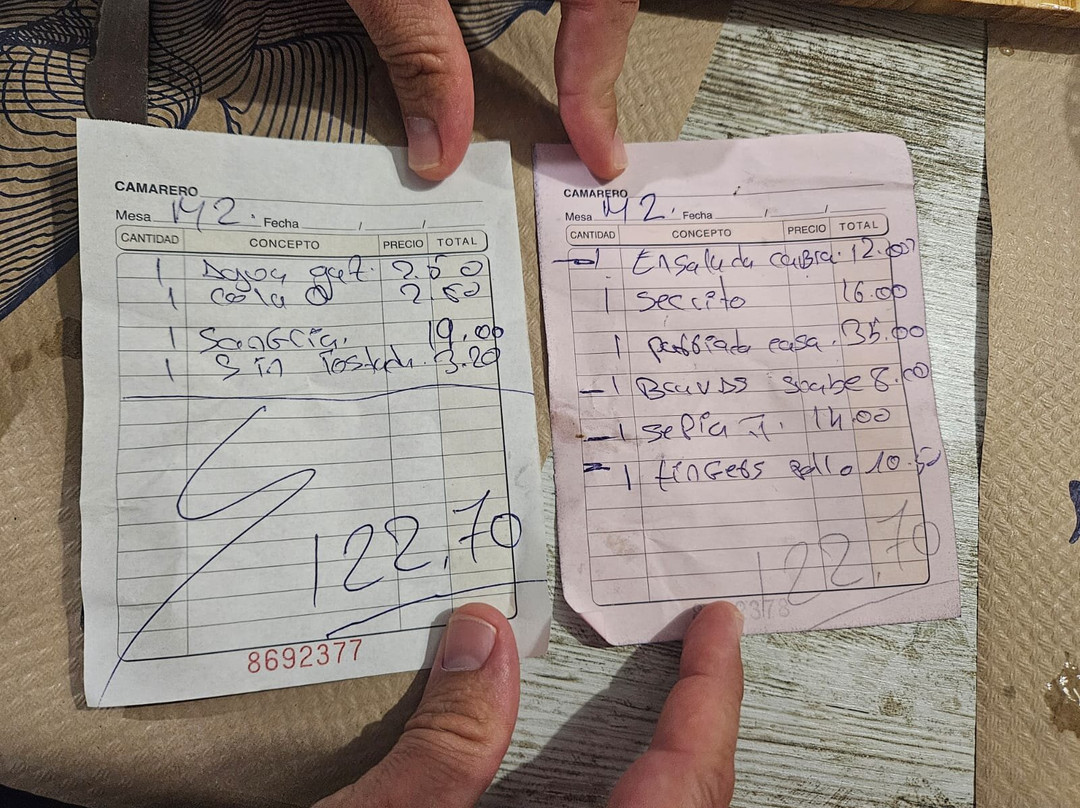 CAMARERO
Mesa M2. Fecha / /
CANTIDAD CONCEPTO PRECIO TOTAL
1 Agua gat. 2 50
1 Cola 0 2 50
1 Sangria. 19.00
1 Sin tostada. 3.20
122,70
8692377
CAMARERO
Mesa M2. Fecha / /
CANTIDAD CONCEPTO PRECIO TOTAL
1 Ensalada cabra. 12.00
1 Secreto 16.00
1 casa. 35.00
1 Bravas 8.00
1 Sepia 14.00
1 fingers pollo 10.50
122,70
2378